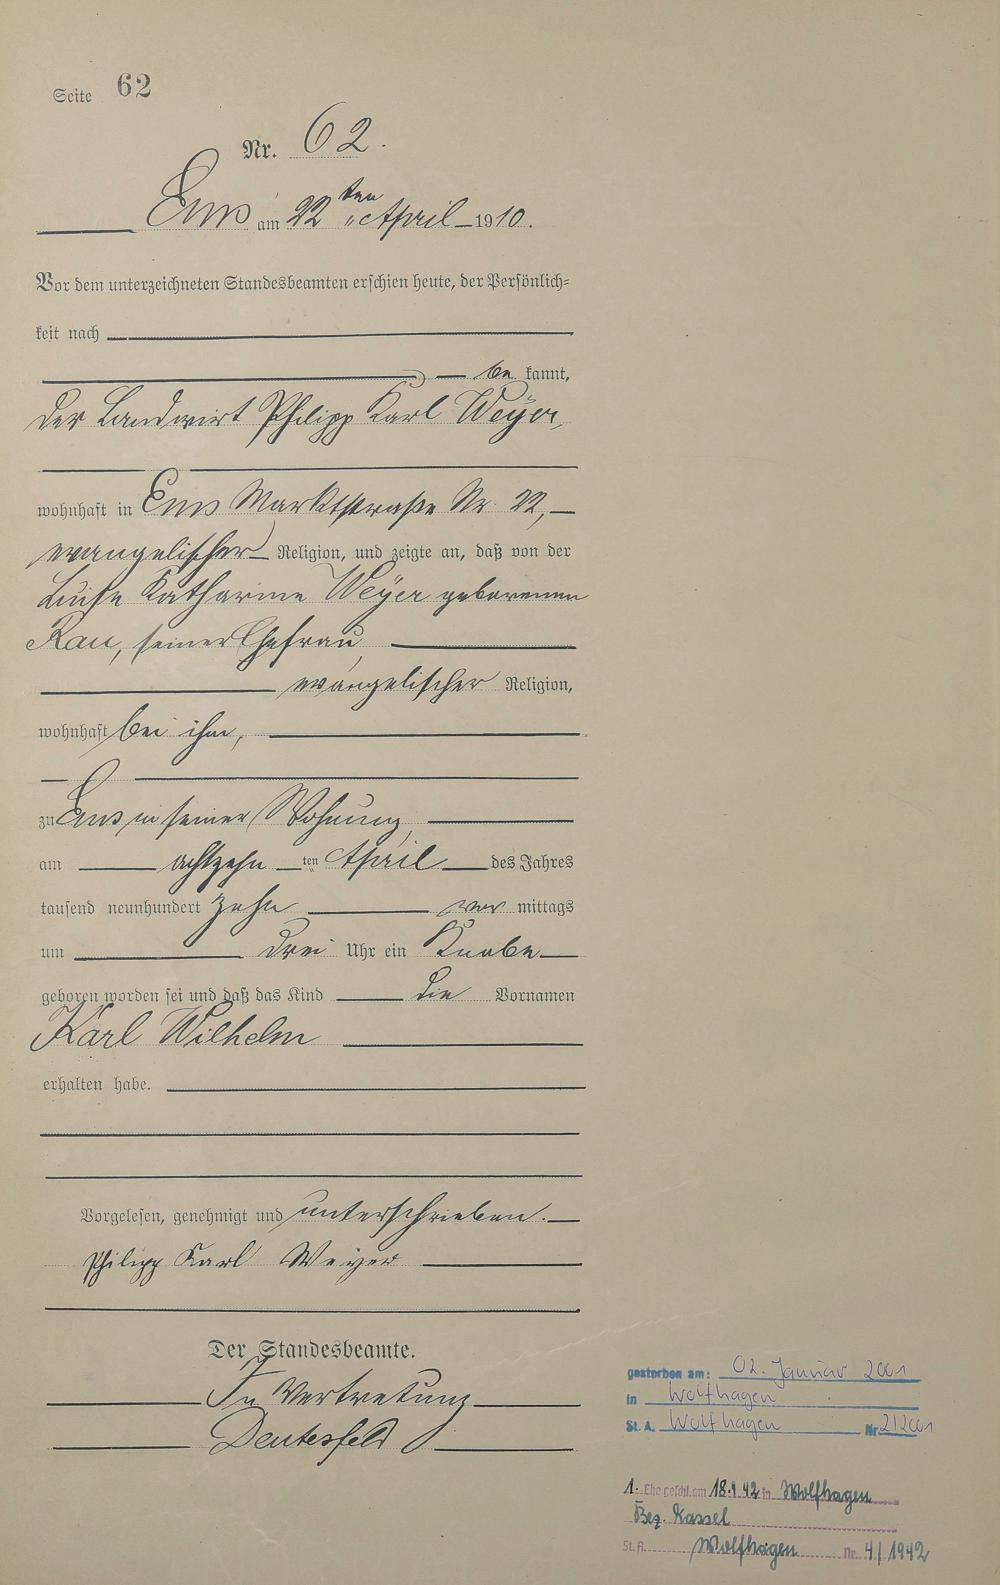 Seite 62
Nr. 62.
Ems am 22ten April 1910.
Vor dem unterzeichneten Standesbeamten erschien heute, der Persönlich-
keit nach
be kannt,
der Landwirt Philipp Karl Weyer,
wohnhaft in Ems Marktstraße Nr. 22,
evangelischer Religion, und zeigte an, daß von der
Luise Katharine Weyer geborenen
Rau, seiner Ehefrau,
evangelischer Religion,
wohnhaft bei ihm,
zu Ems in seiner Wohnung,
am achtzehn ten April des Jahres
tausend neunhundert zehn vor mittags
um drei Uhr ein Knabe
geboren worden sei und daß das Kind die Vornamen
Karl Wilhelm
erhalten habe.
Vorgelesen, genehmigt und unterschrieben.
Philipp Karl Weyer
Der Standesbeamte.
In Vertretung
Deutesfeld
gestorben am: 02. Januar 2001
in Wolfhagen
St. A. Wolfhagen Nr. 2/2001
1. Ehe geschl. am 18.1.42 in Wolfhagen
Bez. Kassel
St. A. Wolfhagen Nr. 4/1942